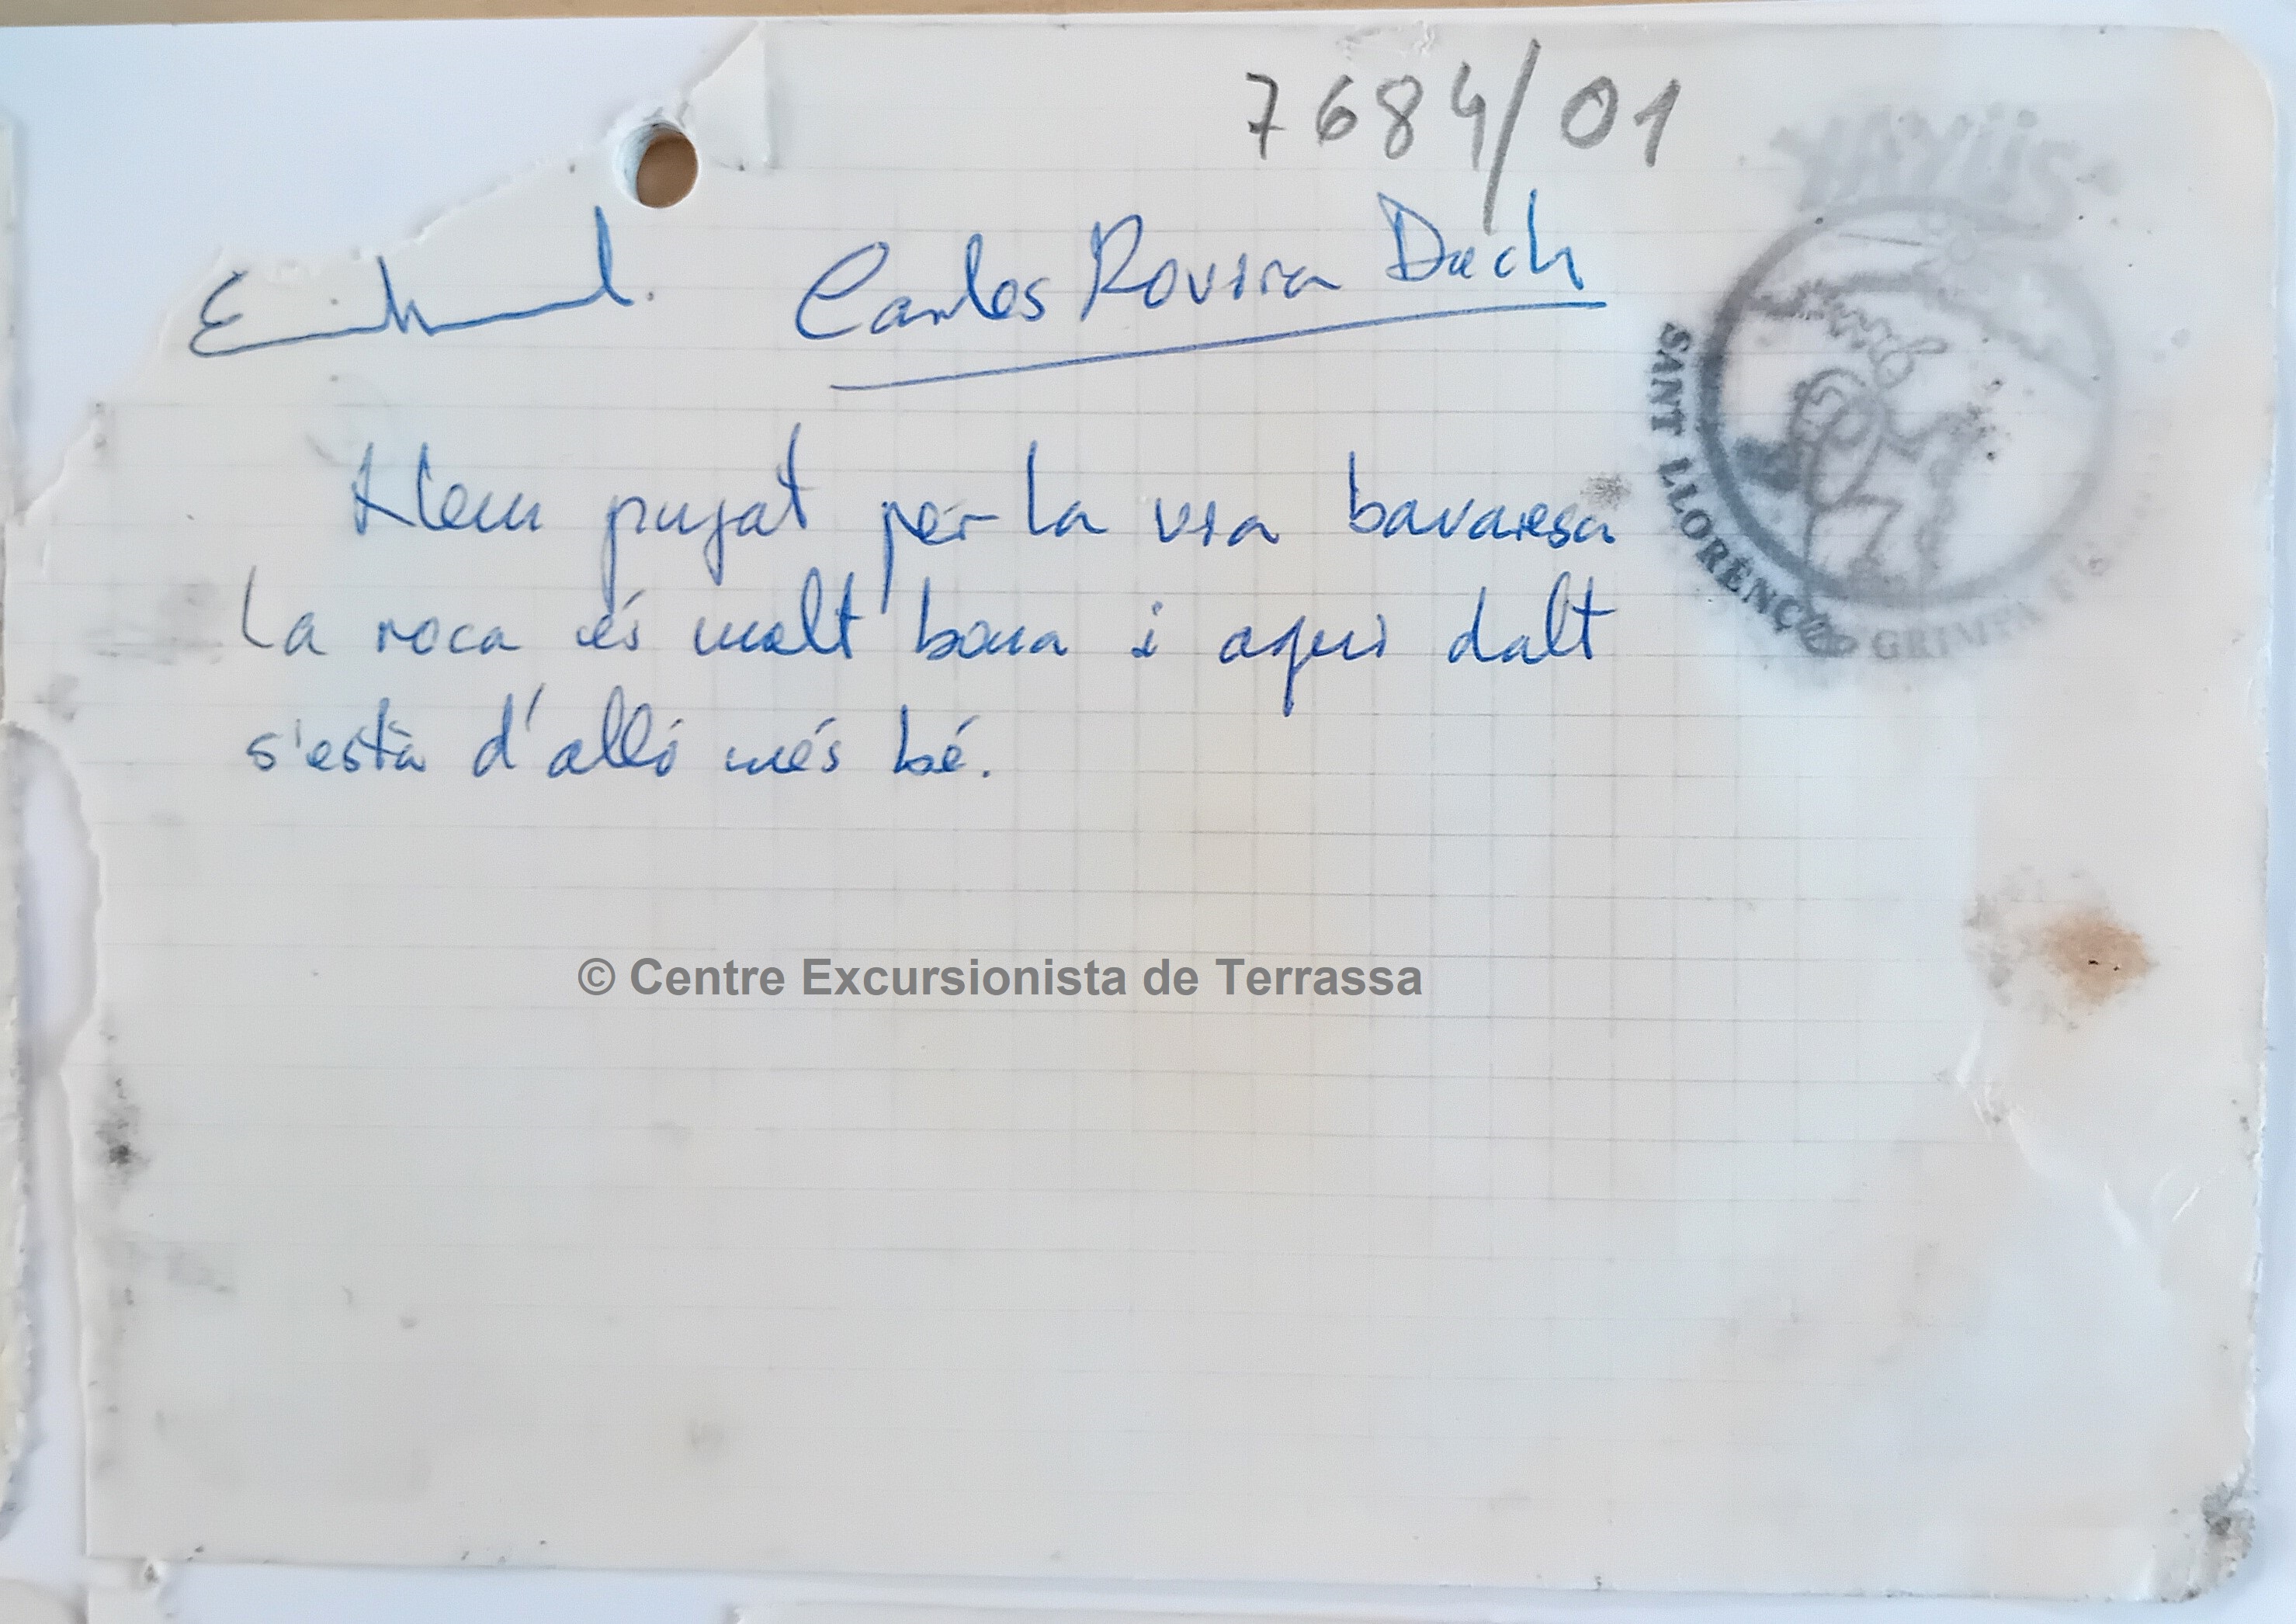 7684/01
Carles Rovira Duch
Hem pujat per la via bavaresa
La roca és molt bona i aquí dalt
s'està d'allò més bé.
SANT LLORENÇ
GRIMPA
© Centre Excursionista de Terrassa